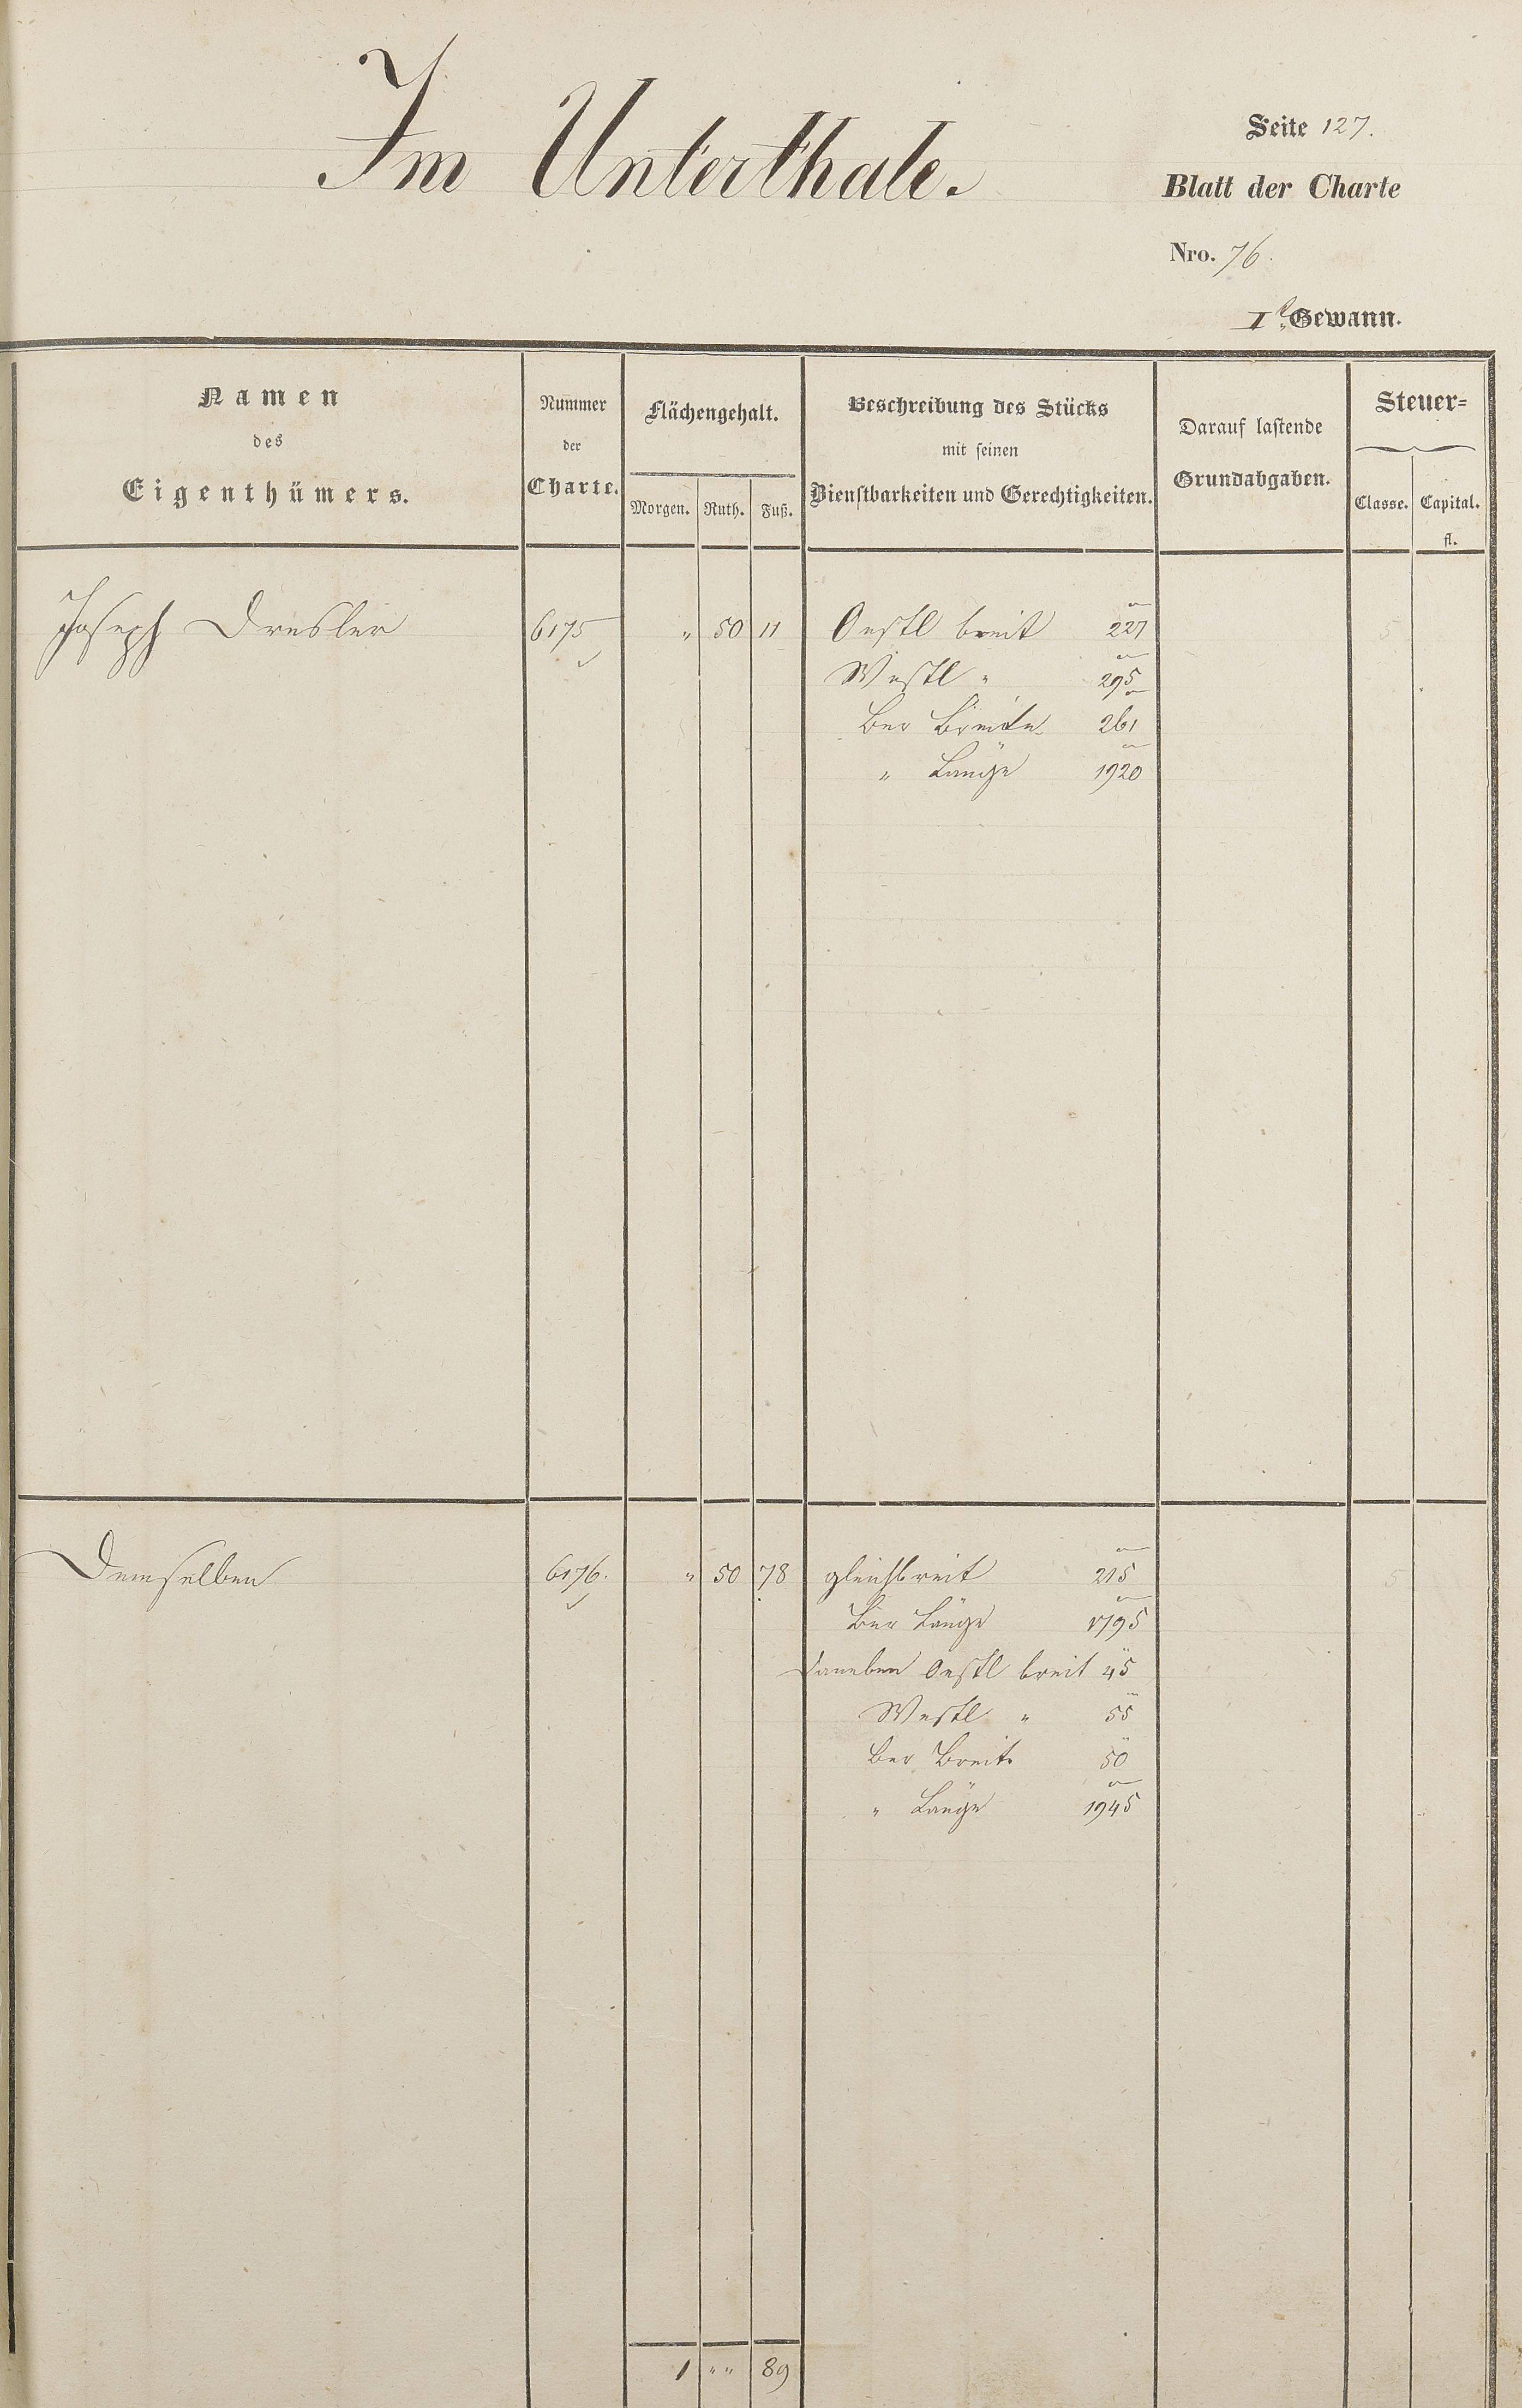 Im Unterthale.
Seite 127.
Blatt der Charte
Nro. 76.
I Gewann.
Namen
des
Eigenthümers.
Nummer
der
Charte.
Flächengehalt.
Morgen. Ruth. Fuß.
Beschreibung des Stücks
mit seinen
Dienstbarkeiten und Gerechtigkeiten.
Darauf lastende
Grundabgaben.
Steuer=
Classe. Capital.
fl.
Joseph Dresler 6175 " 50 11 Oestl breit 227 5
Westl " 295
Ber Breite 261
" Länge 1920
Demselben 6176. " 50 78 gleichbreit 215 5
Ber Länge 1795
Daneben Oestl breit 45
Westl " 55
Ber Breite 50
" Länge 1945
1 " " 89